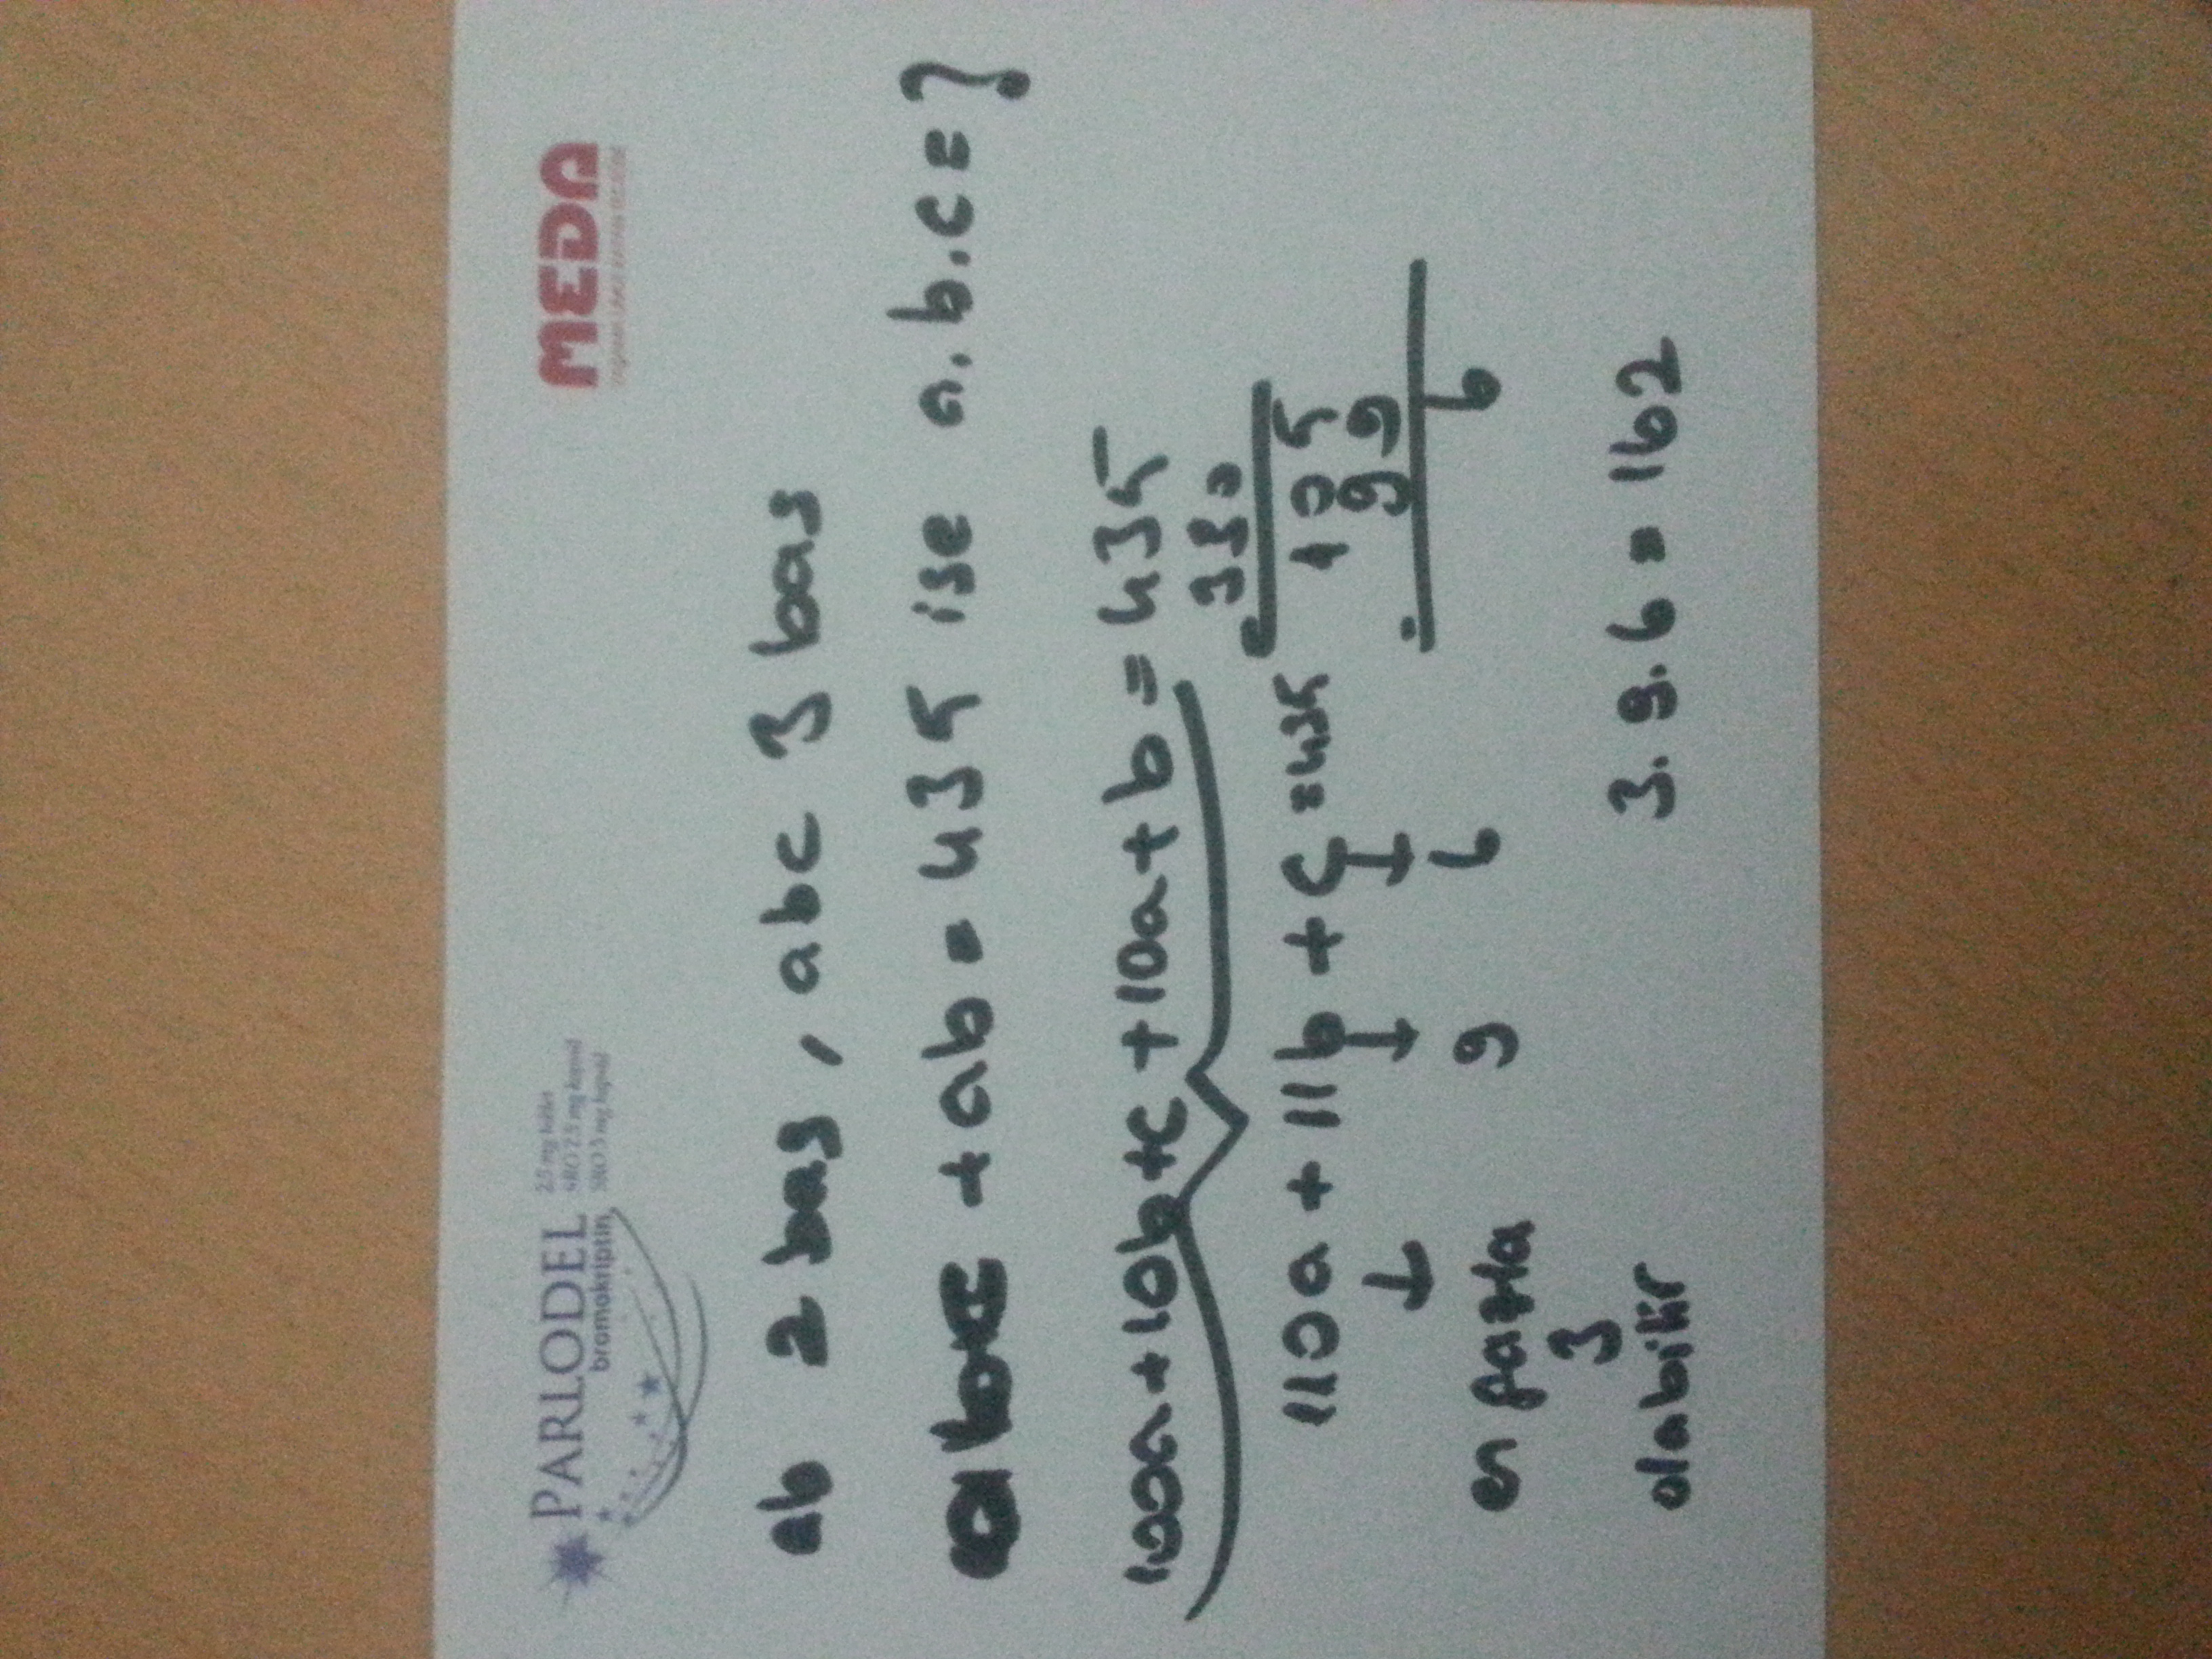 PARLODEL
bromokriptin
2.5 mg tablet
SRO 2.5 mg kapsül
SRO 5 mg kapsül
MEDA
ab 2 bas, abc 3 bas
abc + ab = 435 ise a.b.c = ?
100a + 10b + c + 10a + b = 435
330
110a + 11b + c = 435
105
99
6
en fazla
3
olabilir
9
6
3.9.6 = 162